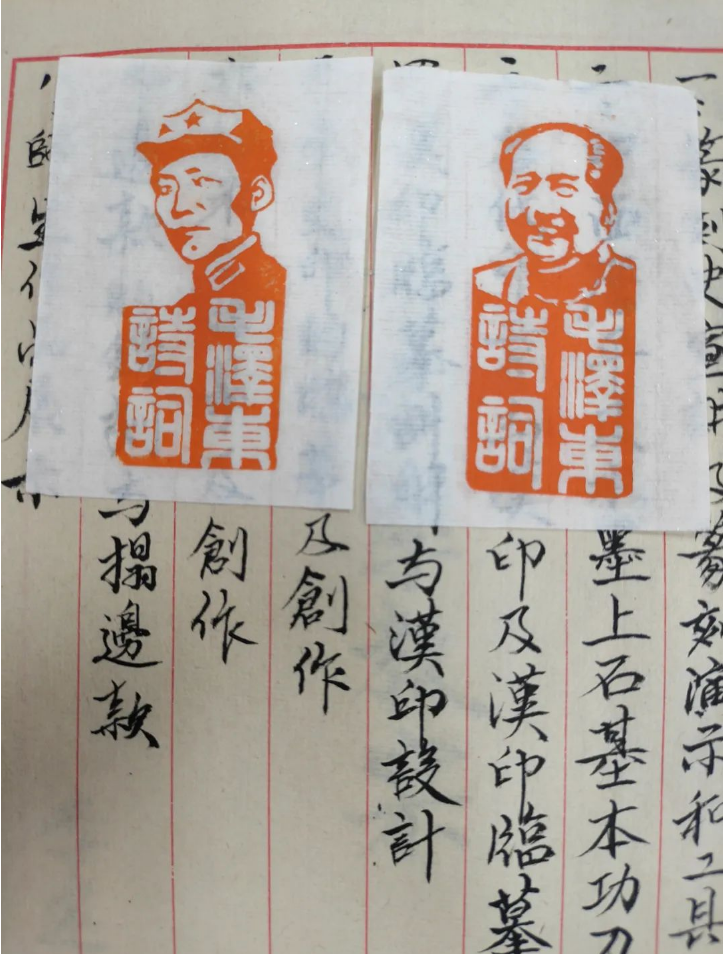 毛澤東
詩詞
毛澤東
詩詞
篆刻演示和工具
墨上石基本功刀
印及漢印臨摹
与漢印設計
及創作
創作
与搨邊款